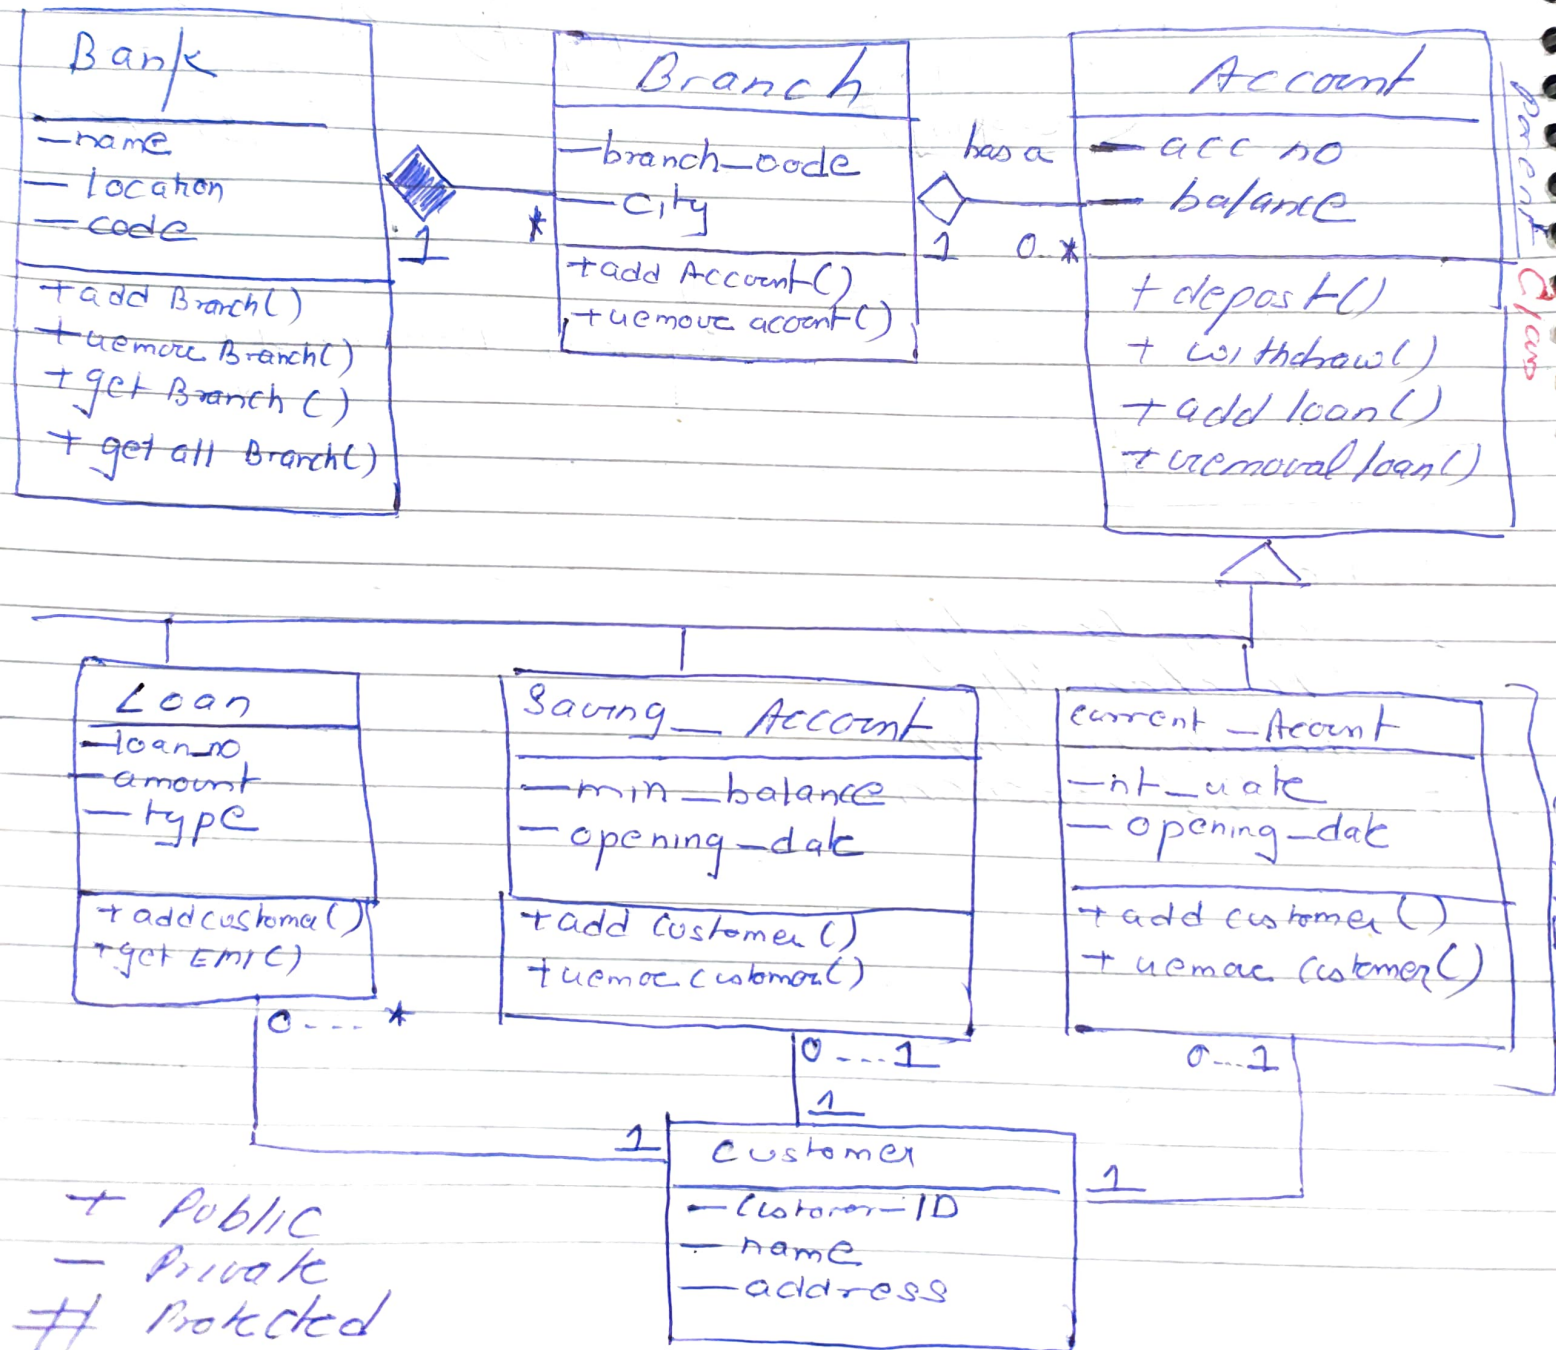 Bank
- name
- location
- code
+ add Branch()
+ remove Branch()
+ get Branch()
+ get all Branch()
1
*
Branch
- branch_code
- city
+ add Account()
+ remove account()
has a
1
0..*
Account
- acc no
- balance
+ deposit()
+ withdraw()
+ add loan()
+ removal loan()
parent class
Loan
- loan_no
- amount
- type
+ add customer()
+ get EMI()
0....*
Saving_Account
- min_balance
- opening_date
+ add customer()
+ remove customer()
0....1
1
current_Account
- int_rate
- opening_date
+ add customer()
+ remove customer()
0...1
1
1
customer
- Customer-ID
- name
- address
+ Public
- Private
# Protected